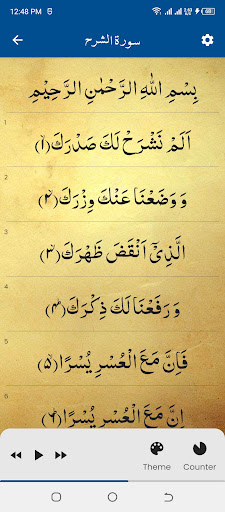 12:48 PM
58
سورۃ الشرح
بِسْمِ اللّٰهِ الرَّحْمٰنِ الرَّحِيْمِ
اَلَمْ نَشْرَحْ لَكَ صَدْرَكَ﴿۱﴾
1
وَوَضَعْنَا عَنْكَ وِزْرَكَ﴿۲﴾
2
الَّذِيْٓ اَنْقَضَ ظَهْرَكَ﴿۳﴾
3
وَرَفَعْنَا لَكَ ذِكْرَكَ﴿۴﴾
4
فَاِنَّ مَعَ الْعُسْرِ يُسْرًا﴿۵﴾
5
اِنَّ مَعَ الْعُسْرِ يُسْرًا﴿۶﴾
6
Theme
Counter